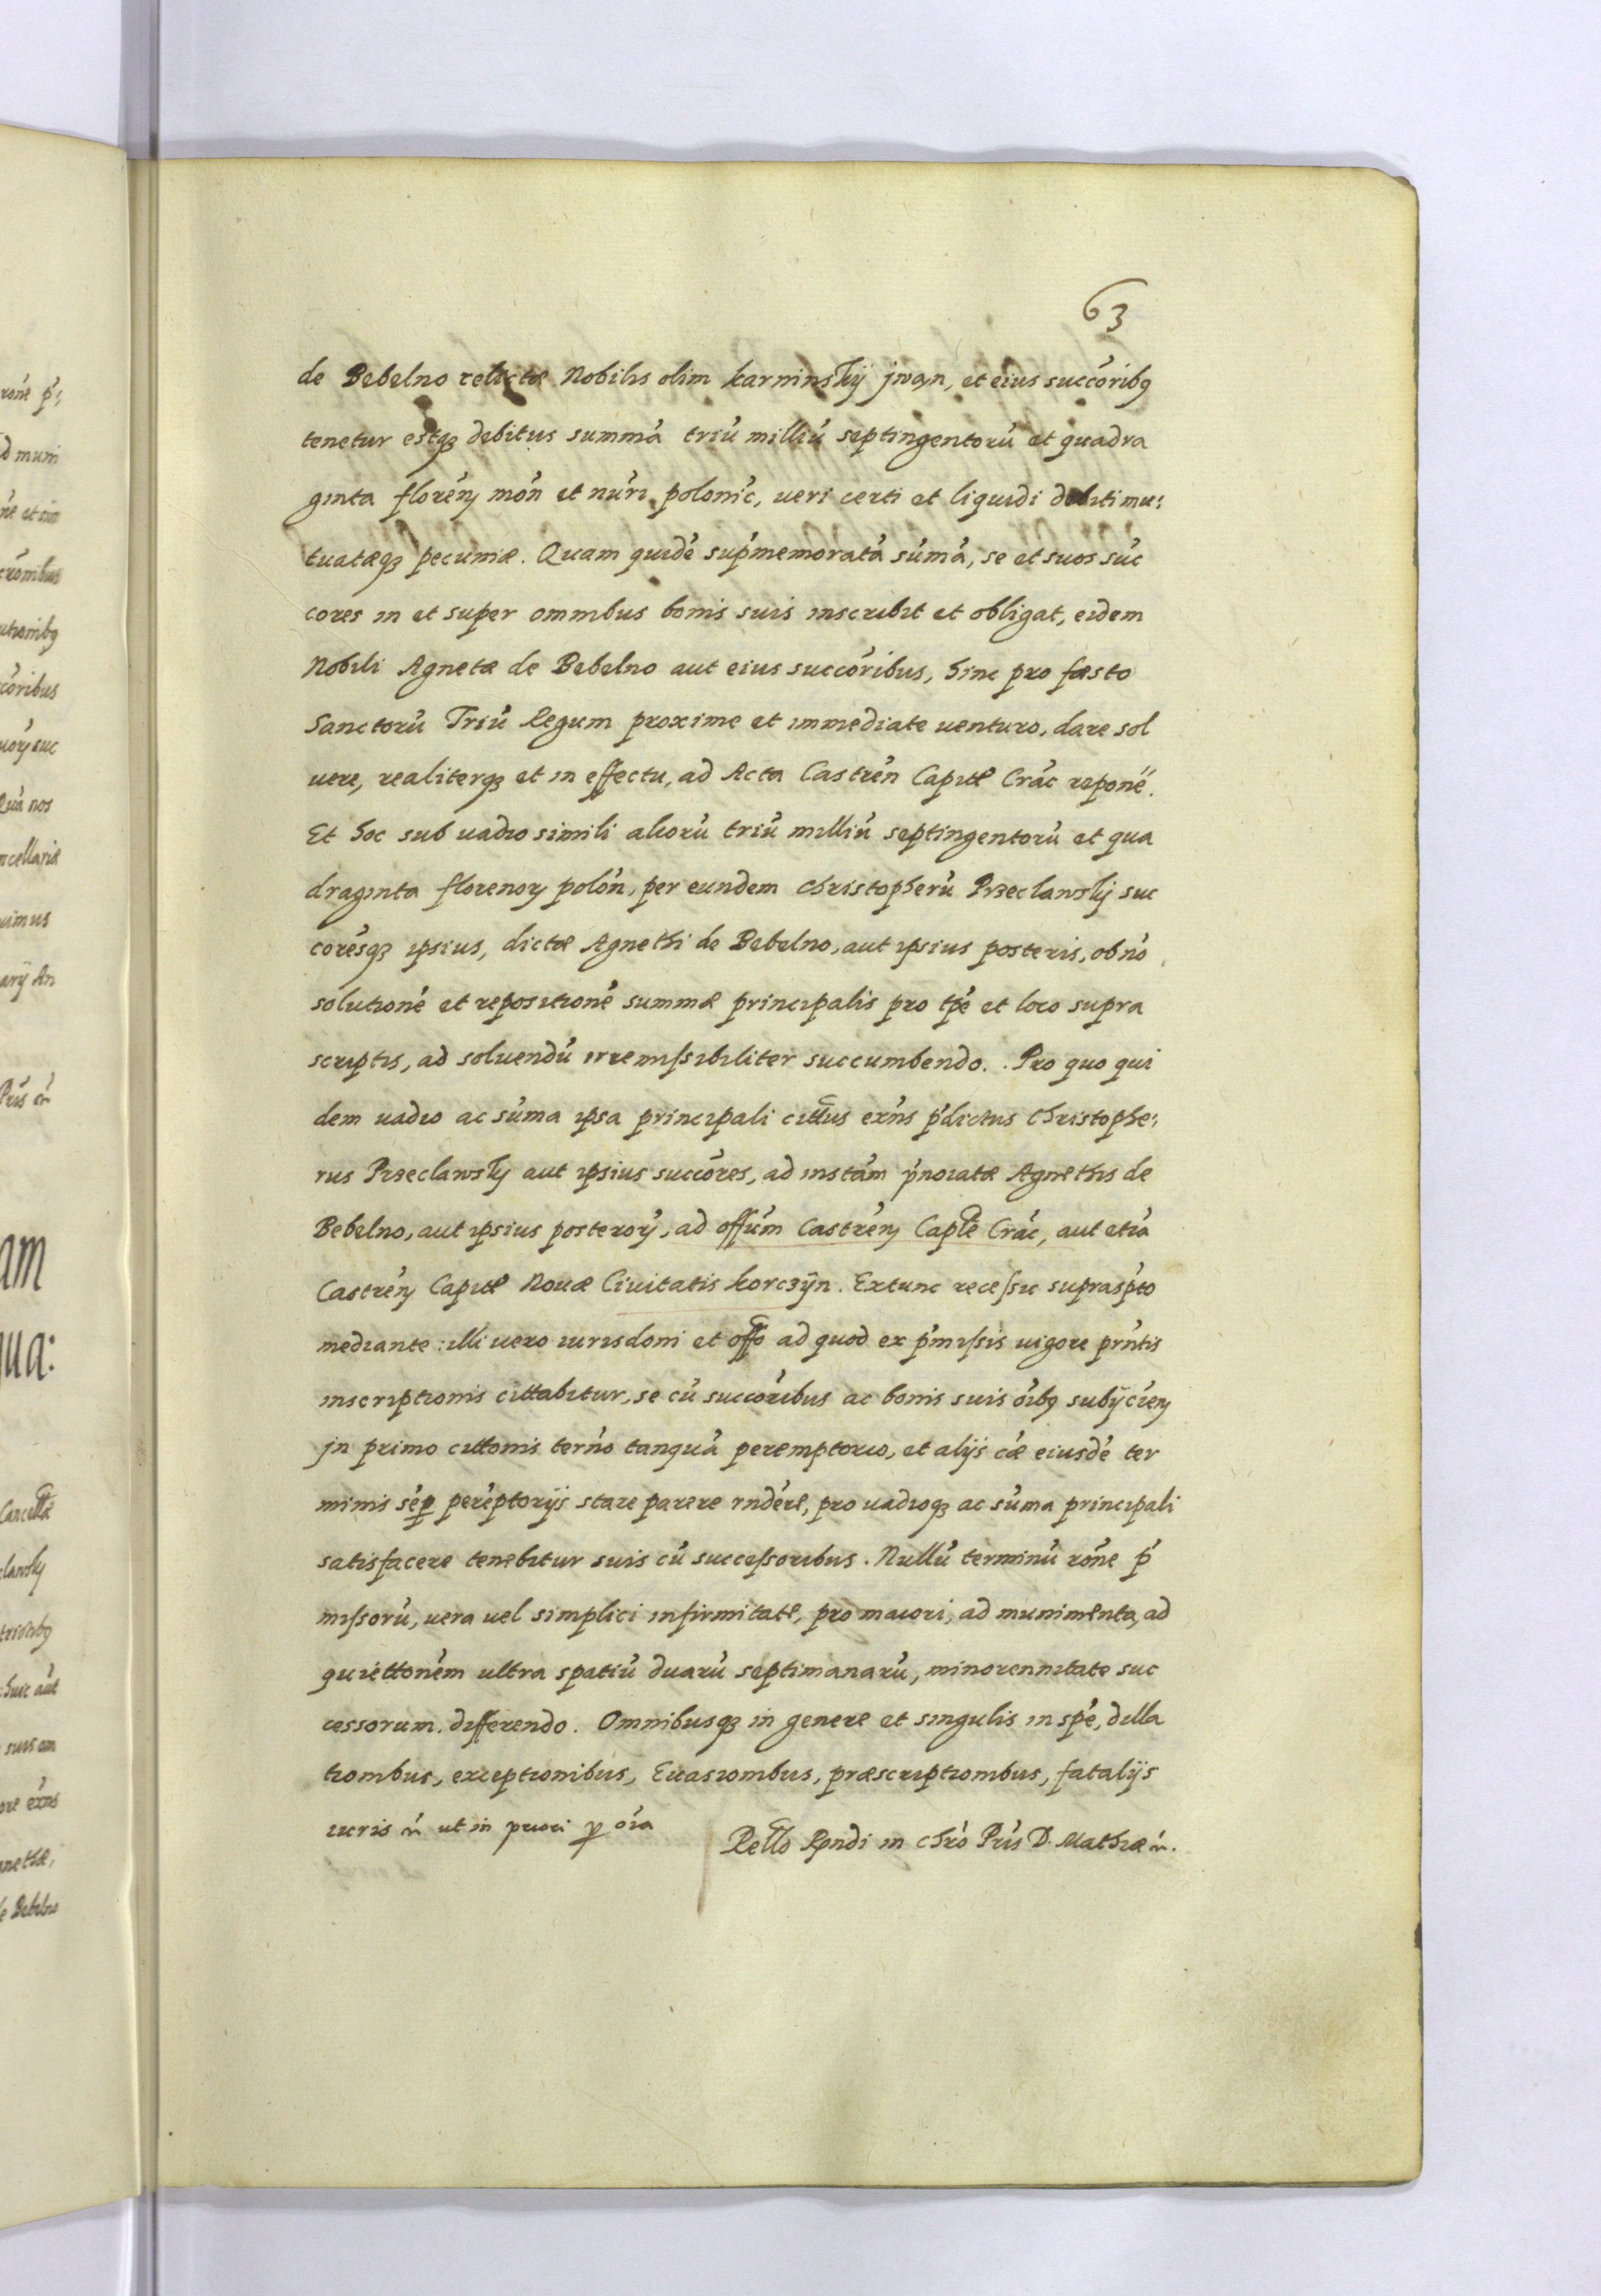 63
de Bebelno relictæ Nobilis olim karninskij jwan, et eius succóribꝫ
tenetur estqꝫ debitus summá triú milliú septingentorú et quadra
ginta floréꝝ món et núri polonić, ueri certi et liquidi debiti mu:
tuatæqꝫ pecuniæ. Quam quidé suṕmemoratá súmá, se et suos súc
cores in et super omnibus bonis suis inscribit et obligat, eidem
Nobili Agnetæ de Bebelno aut eius succóribus, hinc pro fæsto
Sanctorú Triú Regum proxime et immediate uenturo, dare sol
uere, realiterqꝫ et in effectu, ad Acta Castrén Capitł Crác reponé.
Et hoc sub uadio simili aliorú triú milliú septingentorú et qua
draginta florenoꝝ polón, per eundem Christopherú Przeclawskj suc
corésqꝫ ipsius, dictæ Agnethi de Bebelno, aut ipsius posteris, ob nó
solutioné et repositioné summæ principalis pro tṕe et loco supra
scriptis, ad soluendú irremissibiliter succumbendo. Pro quo qui
dem uadio ac súma ipsa principali cittus exńs ṕdictus Christophe:
rus Przeclawskj aut ipsius succóres, ad instám p̃noiatæ Agnethis de
Bebelno, aut ipsius posteroꝝ, ad offúm Castréꝝ Caplé Crác, aut etiá
Castréꝝ Capitł Nouæ Ciuitatis korczÿn. Extunc recessu supraspto
mediante: illi uero iurisdoni et offo ad quod ex ṕmissis uigore prńtis
inscriptionis cittabitur, se cú succóribus ac bonis suis óibꝫ subÿciéꝝ
jn primo cittonis terńo tanquá peremptorio, et alijs cæ eiusdé ter
minis séꝑ peréptorijs stare parere rndére, pro uadioqꝫ ac súma principali
satisfacere tenebitur suis cú successoribus. Nullú terminú róne ṕ
missorú, uera uel simplici infirmitate, pro maiori, ad munimenta, ad
quiettoném ultra spatiú duarú septimanarú, minorennitate suc
cessorum. differendo. Omnibusqꝫ in genere et singulis in spé, dilla
tionibus, exceptionibus, Euasionibus, præscriptionibus, fatalijs
iuris ut in priori ꝑ óia
Rello Rṕndi in Chró Pris D. Mathiæ